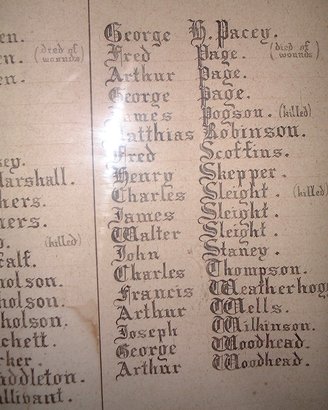 en.
en. (died of wounds)
en.
sey.
arshall.
hers.
ners.
(killed)
calf.
holson.
holson.
holson.
chett.
rker.
iddleton.
llivant.
George H. Pacey.
Fred Page. (died of wounds)
Arthur Page.
George Page.
James Pogson. (killed)
Matthias Robinson.
Fred Scoffins.
Henry Skepper.
Charles Sleight. (killed)
James Sleight.
Walter Sleight.
John Staney.
Charles Thompson.
Francis Weatherhog
Arthur Wells.
Joseph Wilkinson.
George Woodhead.
Arthur Woodhead.